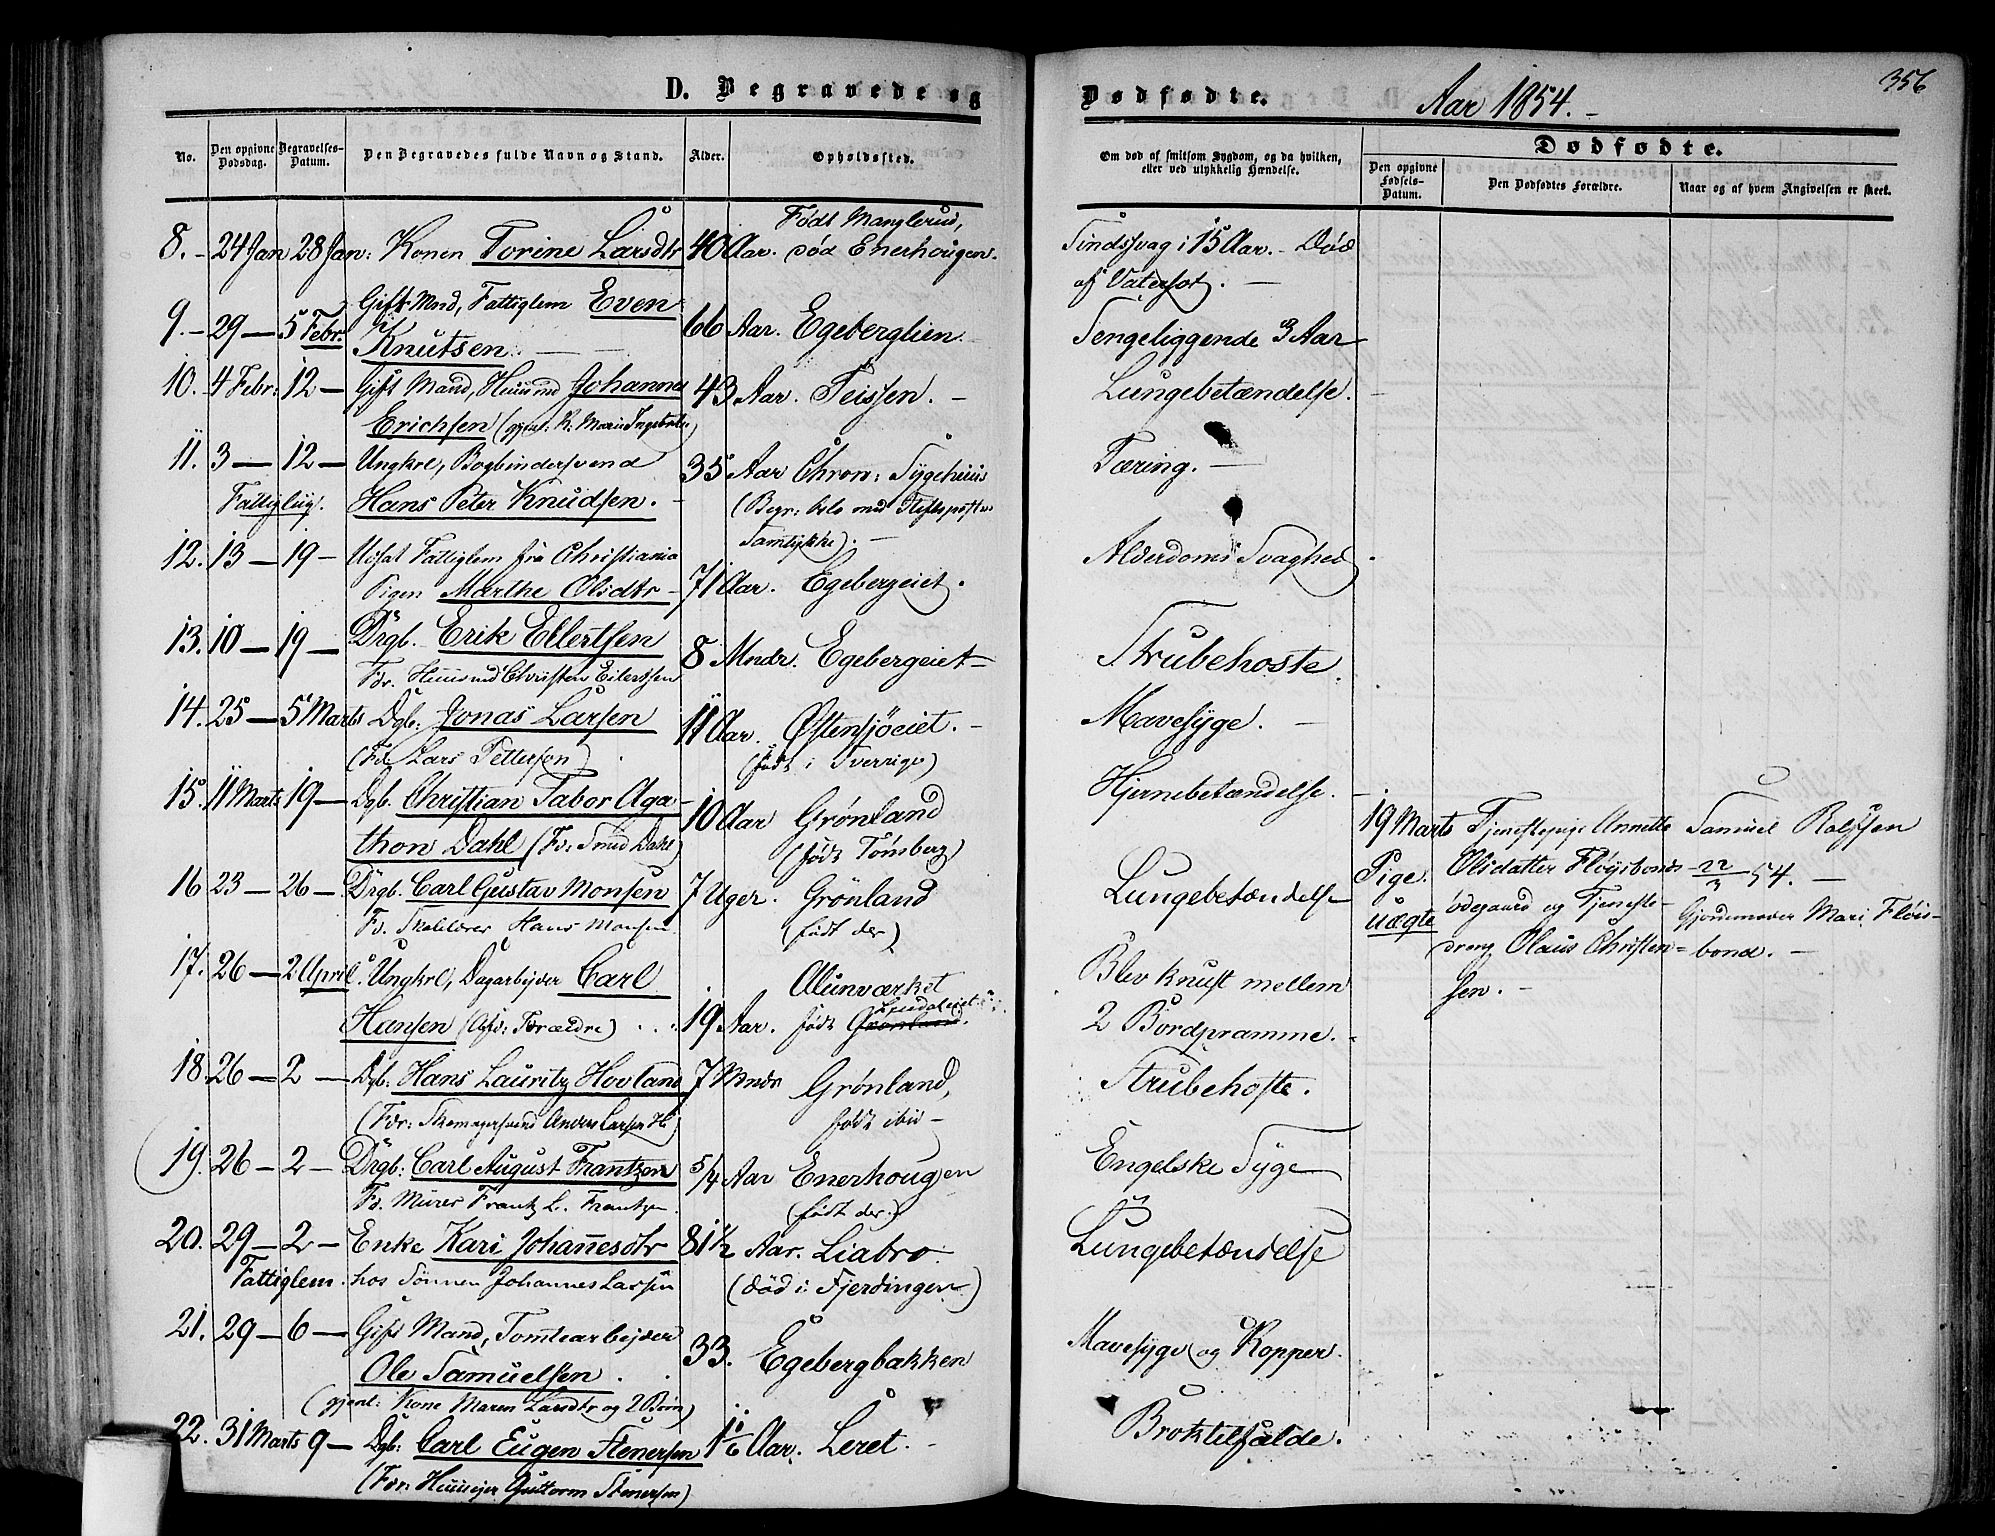 D. Begravede og
No.
Den opgivne Dødsdag.
Begravelses-Datum.
Den Begravedes fulde Navn og Stand.
Alder.
Opholdssted.
8. - 24 Jan 28 Jan: Konen Torine Larsdtr 40 Aar. Født Manglerud,
død Enerhougen.
9. - 29 — 5 Febr. Gift Mnd, Fattiglem Even
Knutsen. 66 Aar. Egeberglien.
10. 4 Febr: 12 — Gift Mand, Huusmd Johannes 43 Aar. Teissen. -
Erichsen
11. 3 — 12 — Ungkrl, Bogbindersvend 35 Aar Chron: Sygehuus
Fattiglig. Hans Peter Knudsen. - (Begr: Oslo med Stiftsprostens
Samtykke). -
12. 13 — 19 - Udsat Fattiglem fra Christiania
Pigen Marthe Olsdtr - 71 Aar. Egebergeiet.
13. 10 — 19 — Drgb. Erik Ellertsen 8 Mndr. Egebergeiet -
Fdr. Huusmd Christen Eilertsen
14. 25 — 5 Marts Dgb: Jonas Larsen 11 Aar. Østensjöeiet. -
(Fd. Lars Pettersen) (født i Sverrige)
15. 11 Marts 19 — Dgb. Christian Tabor Aga- 10 Aar Grønland
thon Dahl (Fd: Smed Dahl) (født Tønsberg)
16 23 — 26 — Drgb. Carl Gustav Monsen 7 Uger. Grønland
Fd. Hans Monsen. (født der)
17. 26 — 2 April. Ungkrl, Dagarbejder Carl Alunværket
Hansen 19 Aar. født Grønland.
18. 26 — 2 — Dgb. Hans Lauritz Hovland 7 Mndr Grønland,
(Fdr: Skomagersvend Anders Larsen H) født ibid -
19. 26 — 2 — Drgb: Carl August Frantzen 5/4 Aar Enerhougen
Fd. Murer Frantz L. Frantzen. (født der.)
20. 29 — 2 — Enke Kari Johannesdtr 81 1/2 Aar. Liabro
Fattiglem. hos Sønnen Johannes Larsen (død i Fjerdingen)
21. 29 — 6 — Gift Mand, Tomtearbejder
Ole Samuelsen. 33. Egebergbakken
(gjenl: Kone Maren Larsdtr og 2 Børn)
22. 31 Marts 9 — Dgb: Carl Eugen Stenersen 1 1/6 Aar. Leret. -
(Fdr: Huuseier Guttorm Stenersen)
Dødfødte.
Aar 1854. -
356
Om død af smitsom Sygdom, og da hvilken,
eller ved ulykkelig Hændelse.
Dødfødte.
Den opgivne Fødsels-Datum.
Den Dødfødtes Forældre.
Naar og af hvem Angivelsen er skeet.
Sindssvag i 15 Aar. - Død
af Vatersot. -
Sengeliggende 3 Aar
Lungebetændelse. -
Tæring. -
Alderdoms Svaghed.
Strubehoste.
Mavesyge. -
Hjernebetændelse. -
Lungebetændelse
Blev knust mellem
2 Bordpramme. -
Strubehoste.
Engelske Syge
Lungebetændelse
Mavesyge og Kopper.
Broktilfælde.
19 Marts
Pige.
uægte
Tjenestepige Annette
Olsdatter Fløysbonds-
ødegaard og Tjeneste-
dreng Olaus Christen-
sen. -
Samuel Rolfsen
22/3 54. -
Gjordemoder Mari Fløis-
bond. -